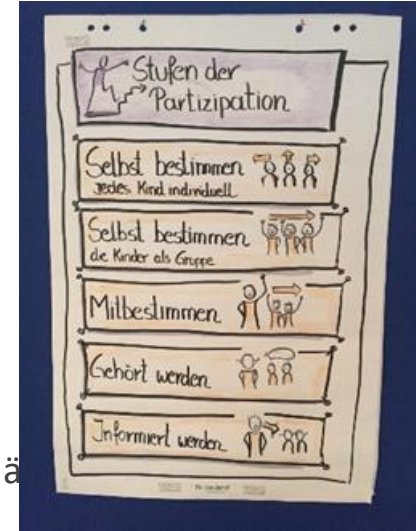 Stufen der
Partizipation
Selbst bestimmen
jedes Kind individuell
Selbst bestimmen
die Kinder als Gruppe
Mitbestimmen
Gehört werden
Informiert werden
ä